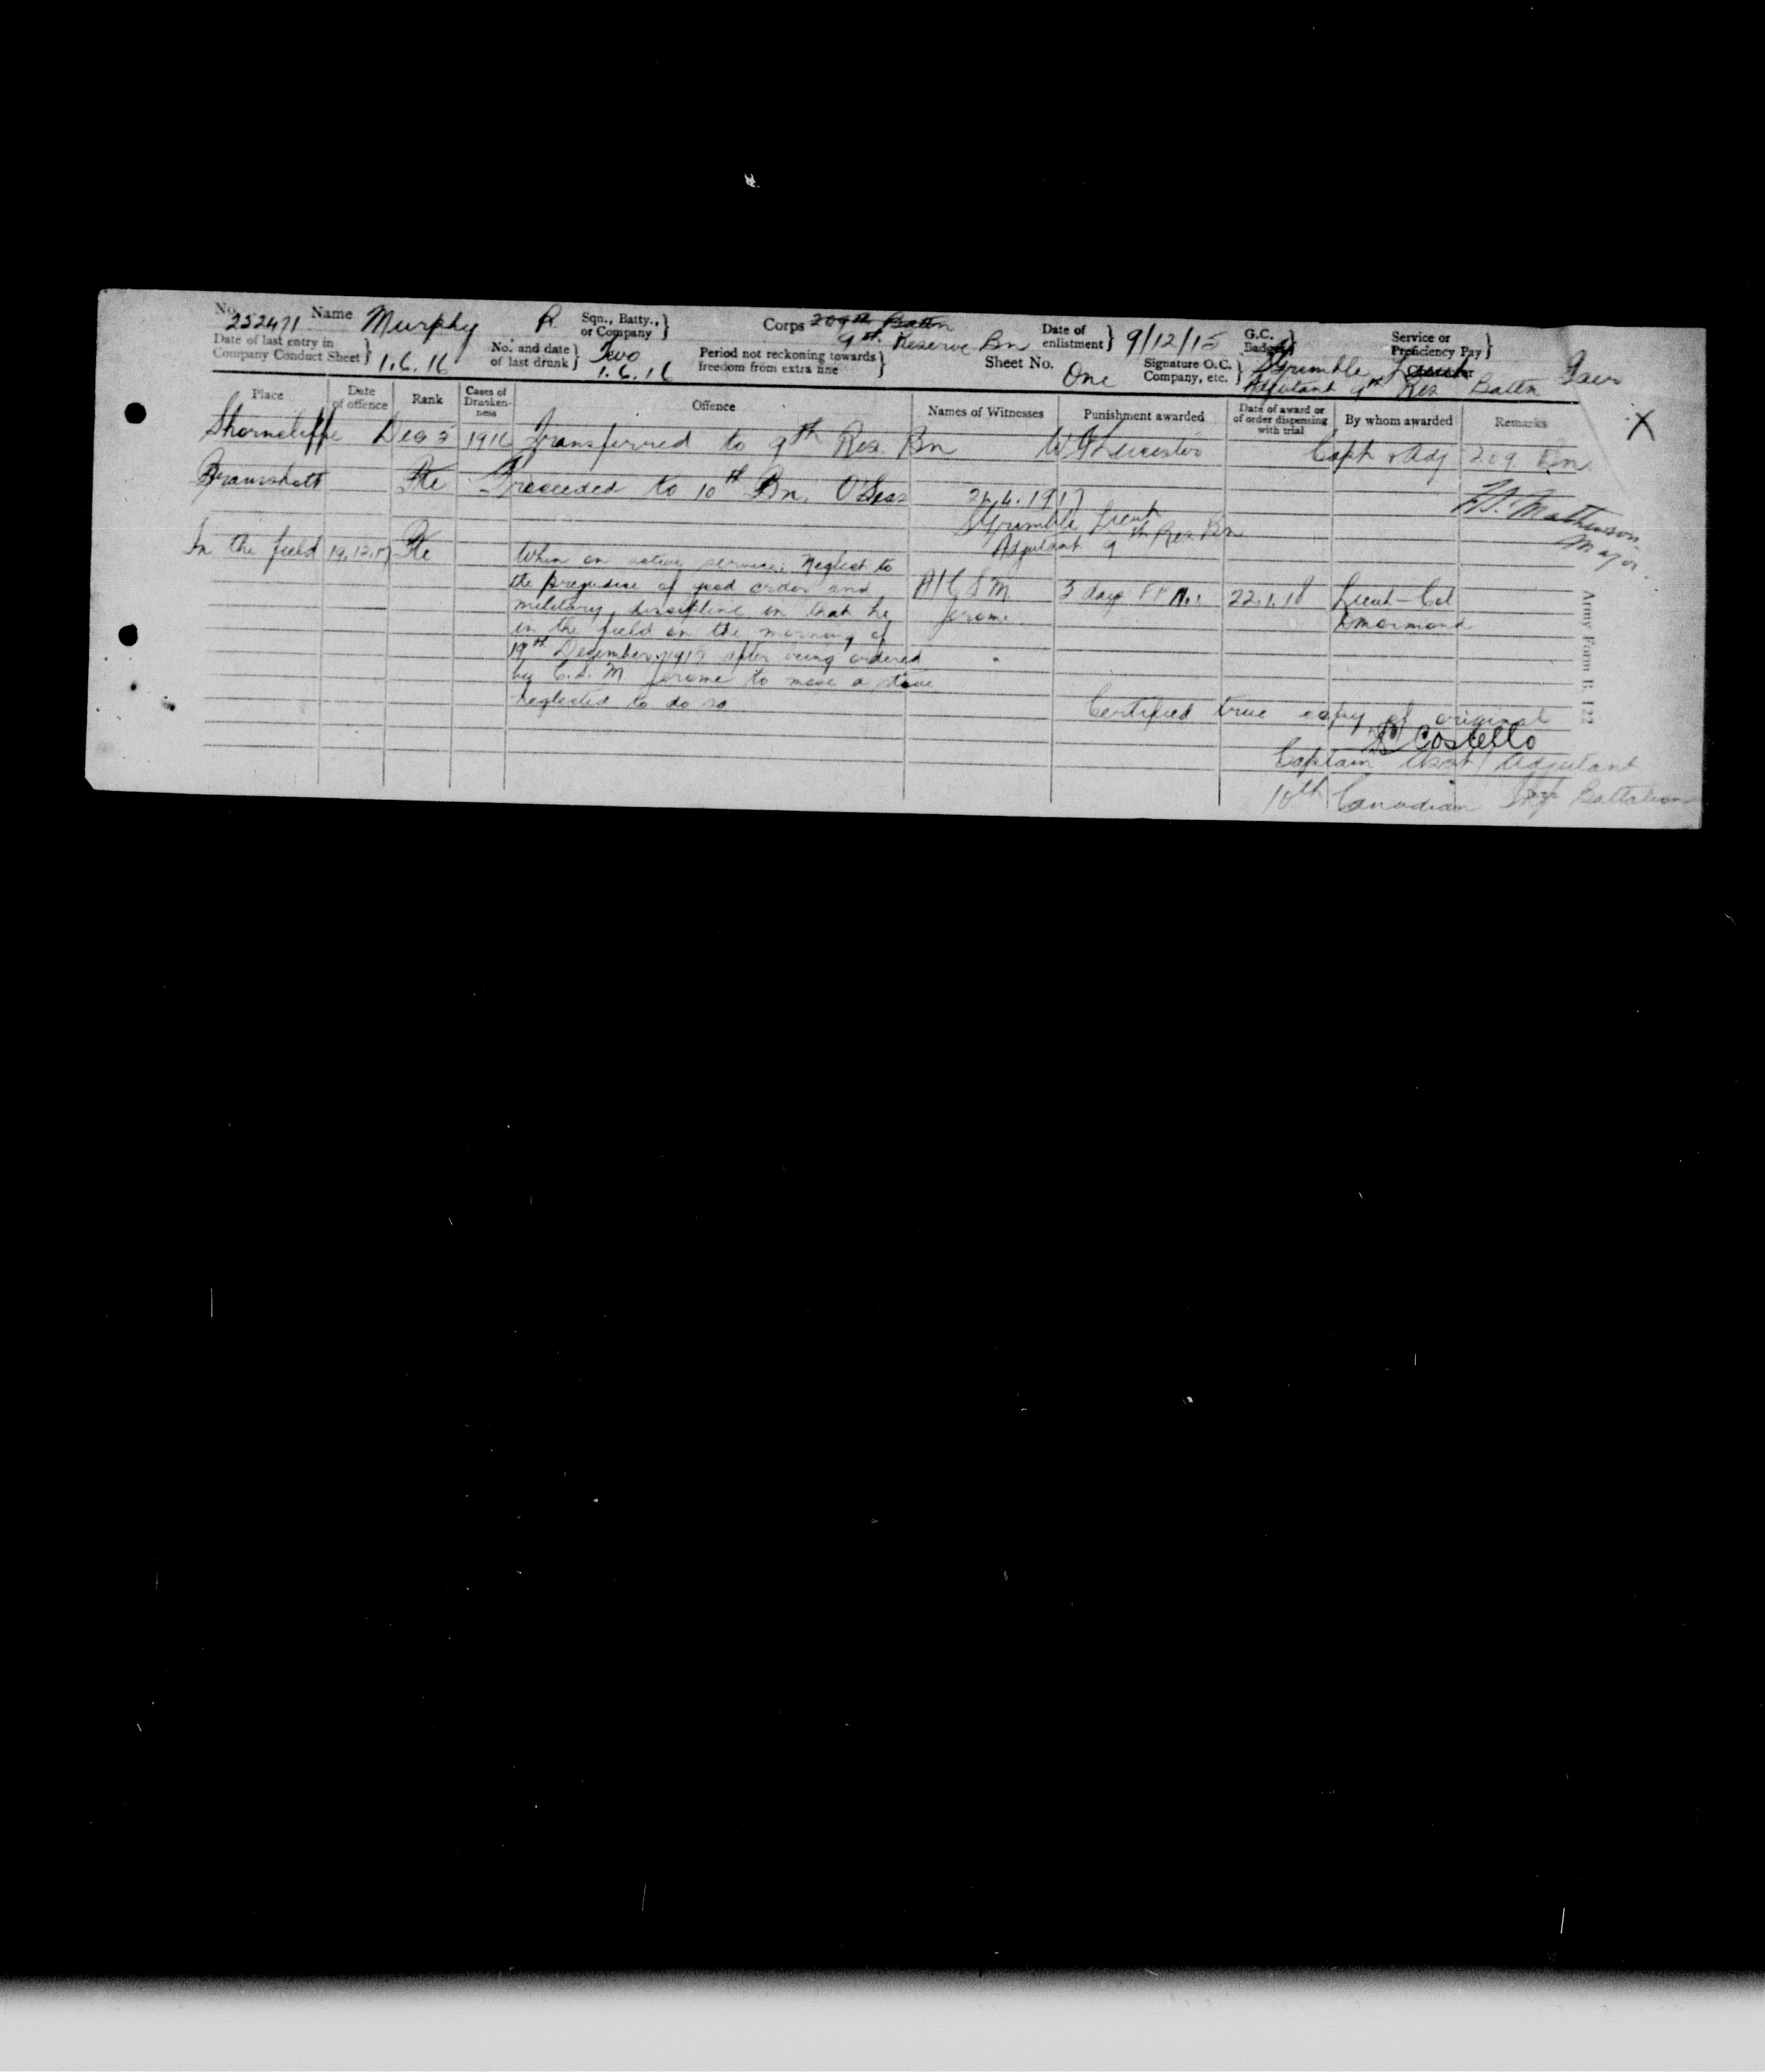 No. 252471 Name Murphy R. Sqn., Batty., or Company Corps 209th Battn 9th Reserve Bn Date of enlistment 9/12/15 G.C. Badges Service or Proficiency Pay
Date of last entry in Company Conduct Sheet 1.6.16 No. and date of last drunk Two 1.6.16 Period not reckoning towards freedom from extra fine Sheet No. One Signature O.C. Company, etc. Grumble Lieut
Adjutant 9th Res Battn
Place Date of offence Rank Cases of Drunkenness Offence Names of Witnesses Punishment awarded Date of award or of order dispensing with trial By whom awarded Remarks
X
Shorncliffe Dec 5 1916 Transferred to 9th Res. Bn Capt & Adj 209 Bn
Bramshott Pte Proceeded to 10th Bn. O'Seas 24.4.1917
Mathewson
Major
Grumble Lieut
Adjutant 9th Res Bn
In the field 19.12.17 Pte When on active service Neglect to
the prejudice of good order and A/C S M 3 days FP No. 1 22.1.18 Lieut-Col
military discipline in that he Jerome Ormond
in the field on the morning of
19th December 1917 after being ordered
by C.S.M Jerome to move a stove
neglected to do so
Certified true copy of original
Costello
Captain Asst/Adjutant
10th Canadian Inf Battalion
Army Form B. 122